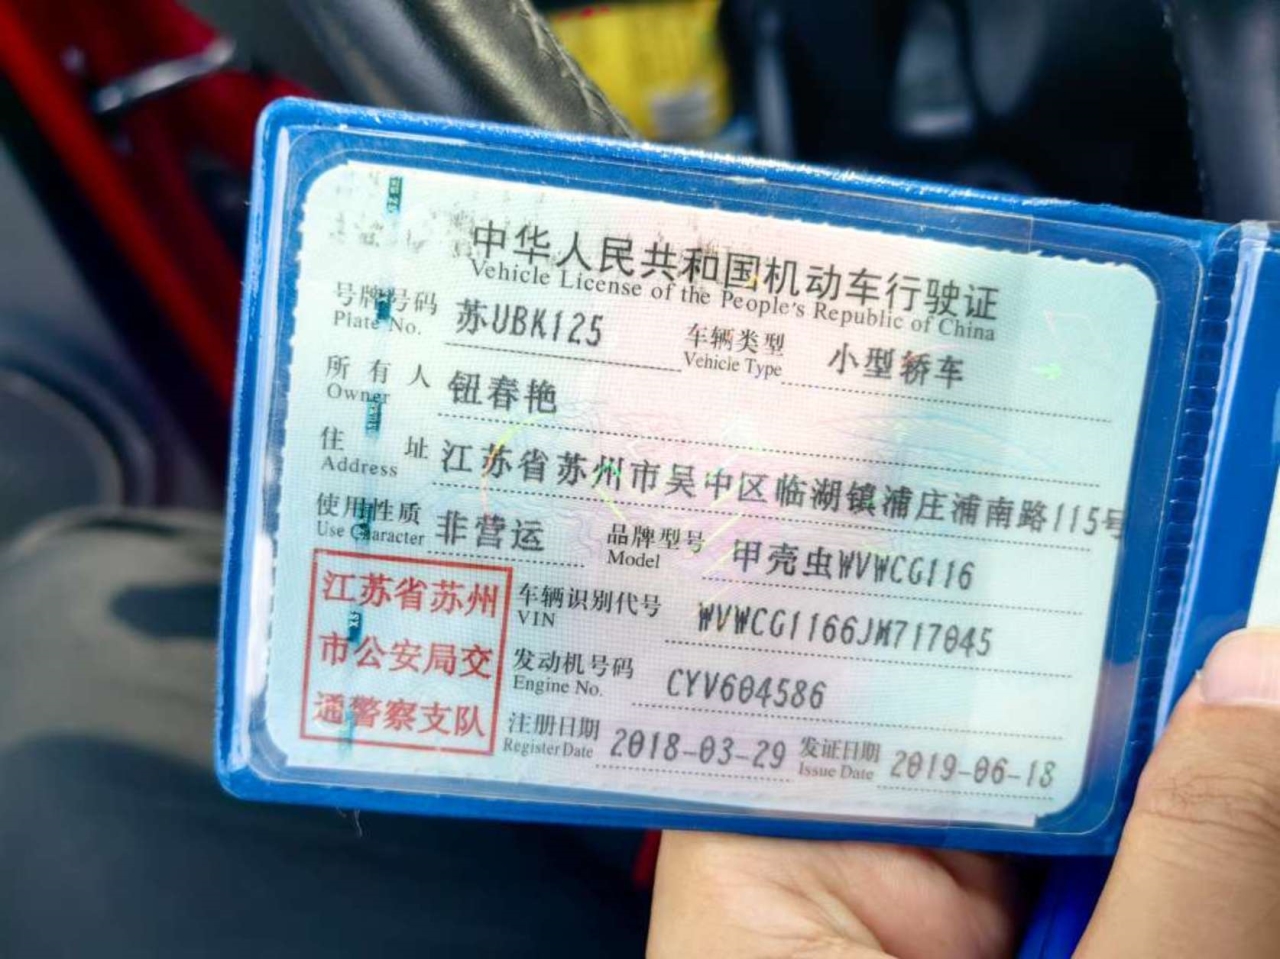 中华人民共和国机动车行驶证
Vehicle License of the People's Republic of China
号牌号码 苏UBK125 车辆类型 小型轿车
Plate No. Vehicle Type
所有人 钮春艳
Owner
住址 江苏省苏州市吴中区临湖镇浦庄浦南路115号
Address
使用性质 非营运 品牌型号 甲壳虫WVWCG116
Use Character Model
江苏省苏州
市公安局交
通警察支队
车辆识别代号 WVWCG1166JM717045
VIN
发动机号码 CYV604586
Engine No.
注册日期 2018-03-29 发证日期 2019-06-18
Register Date Issue Date